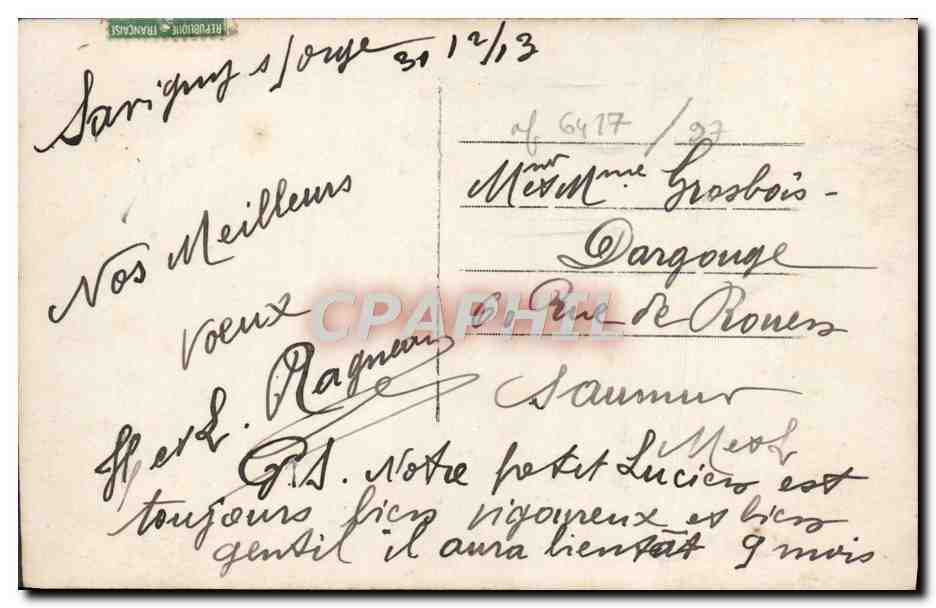 REPUBLIQUE FRANÇAISE
Savigny s/orge 31 12/13
Nos Meilleurs
voeux
H et L. Ragneau
rf 6417 / 27
Mr et Mme Grosbois-
Dargouge
6, Rue de Rouen
Saumur
M et L
CPAPHIL
P.S. Notre petit Lucien est
toujours bien vigoureux et bien
gentil il aura bientôt 9 mois